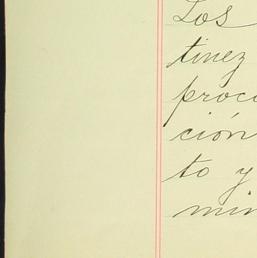 Los
tinez
proc
ción
to y
min